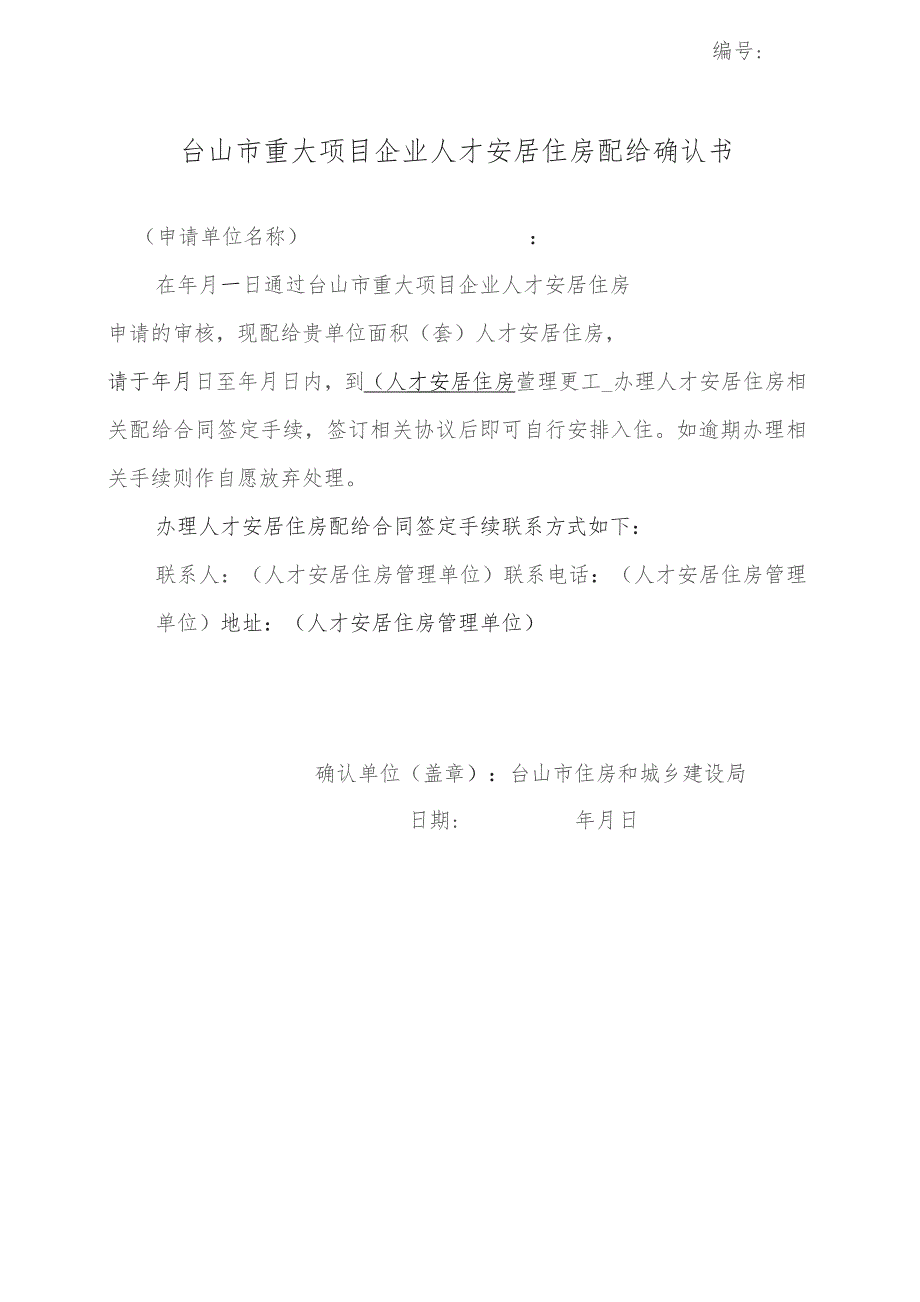 编号:
台山市重大项目企业人才安居住房配给确认书
（申请单位名称）：
在年月一日通过台山市重大项目企业人才安居住房
申请的审核，现配给贵单位面积（套）人才安居住房，
请于年月日至年月日内，到（人才安居住房萱理更工_办理人才安居住房相
关配给合同签定手续，签订相关协议后即可自行安排入住。如逾期办理相
关手续则作自愿放弃处理。
办理人才安居住房配给合同签定手续联系方式如下：
联系人：（人才安居住房管理单位）联系电话：（人才安居住房管理
单位）地址：（人才安居住房管理单位）
确认单位（盖章）：台山市住房和城乡建设局
日期: 年月日